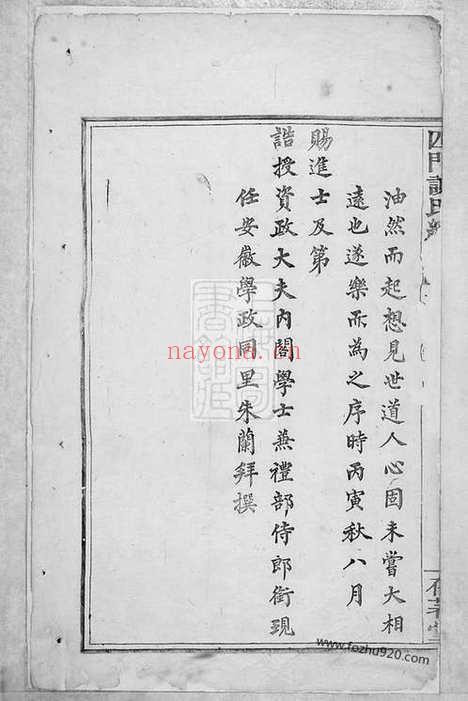 油然而起想見世道人心固未嘗大相
遠也遂樂而為之序時丙寅秋八月
賜進士及第
誥授資政大夫內閣學士兼禮部侍郎銜現
任安徽學政同里朱蘭拜撰
四門謝氏
nayona.cn
www.fozhu920.com